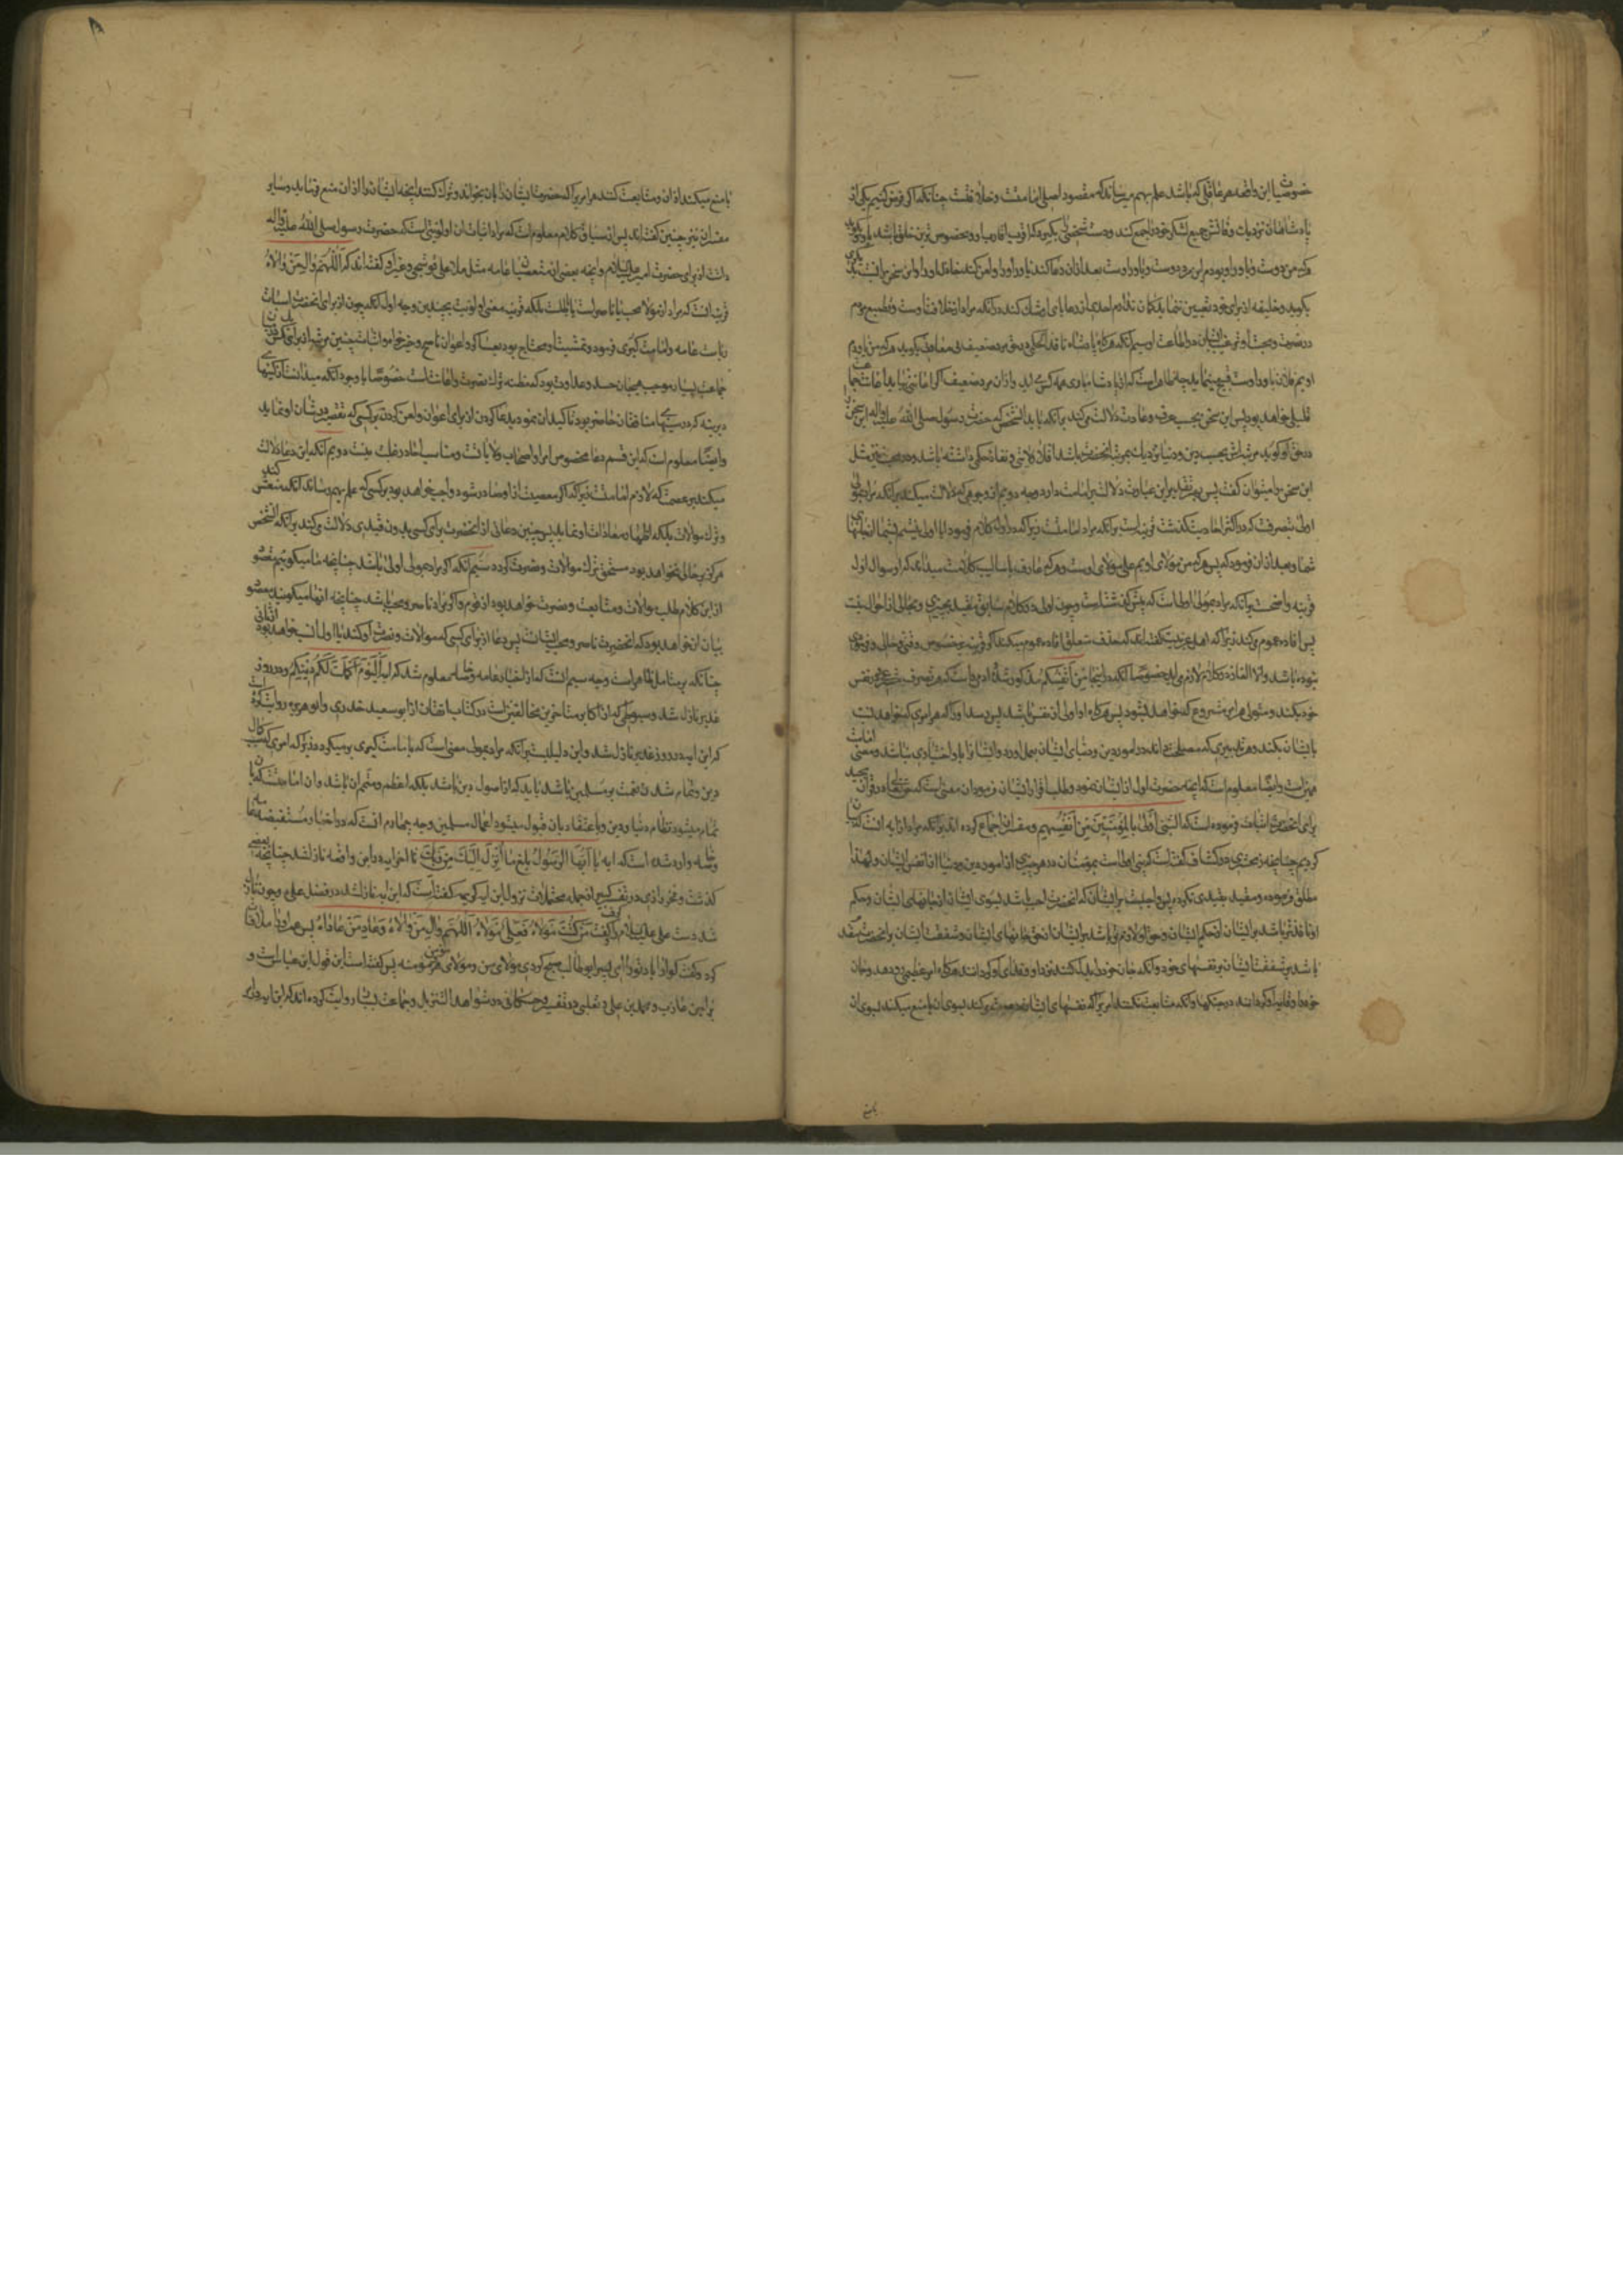 خصوصیات این واقعه هر عاقلی که باشد علم بهم میرساند که مقصود اصلی امامت و خلافتست چنانکه اگر فرض کنیم یکی از
پادشاهان نزدیک وفاتش جمیع لشکر خود را جمع کند و دست شخصی بگیرد که اقرب اقارب او و مخصوص ترین خلق باشد باو و بگوید
هر که من دوست و یاور او بودم این مرد دوست و یاور اوست بعد از آن دعا کند یاور او را و لعن کند خذلان کننده او را و این سخن را
بگوید و خلیفه از برای خود تعیین ننماید گمان ندارم احدی از رعایای او شک کند در آنکه مراد او خلافت اوست و تطمیع مردم
در نصرت و محبت او و ترغیب ایشان در اطاعت او سیم آنکه هرگاه پادشاه نافذ الحکمی در حق مرد ضعیف بگوید هر که من یاور
اویم فلان یاور اوست قبیح مینماید چه ظاهر است که از پادشاه یاری همه کس می آید و از آن مرد ضعیف اگر اعانتی بیاید اعانت جمع
قلیلی خواهد بود پس این سخن بحسب عرف و عادت دلالت میکند بر آنکه باید آن شخص که حضرت رسول صلی الله علیه و آله این سخن
در حق او گوید مرتبه اش بحسب دین و دنیا نزدیک بمرتبه آنحضرت باشد
این سخن را میتوان گفت پس بهر تقدیر این عبارت دلالت بر امامت دارد وجه دویم از وجوهی که دلالت میکند بر آنکه مراد بمولی
اولی بتصرفست که در اکثر احادیث گذشت قرینه ایست بر آنکه مراد امامتست زیرا که در اول کلام فرمود آیا اولی نیستم بشما از نفسهای
شما و بعد از آن فرمود که پس هر که من مولای اویم علی مولای اوست و هر که عارف باسالیب کلامست میداند که این سؤال اول
قرینه واضحست بر آنکه مراد بمولی اولی است که پیش گذشت
پس افاده عموم میکند زیرا که اهل عربیت گفته اند که حذف متعلق افاده عموم میکند
خود بکند و متولی هر امر مشروع که خواهد بشود پس هرگاه او اولی از نفس باشد
بایشان بکند و هر تدبیری که مصلحت داند در امور دین و دنیای ایشان بعمل آورد و ایشان را با او اختیاری نباشد و معنی امامت
همین است و ایضا معلوم است که آنچه حضرت اول از ایشان نمود و طلب اقرار از ایشان فرمود آن معنی است که حق تعالی در قرآن مجید
برای آنحضرت اثبات فرموده است که النبی اولی بالمؤمنین من انفسهم و مفسران اجماع کرده اند بر آنکه مراد از آیه آنست که
کردیم چنانچه زمخشری در کشاف گفته است که نبی اولی است بمؤمنان در هر چیزی از امور دین و دنیا از نفس ایشان و لهذا
مطلق فرموده و مقید بقیدی نکرده پس واجبست بر ایشان که آنحضرت احب باشد بسوی ایشان از جانهای ایشان و حکم
او نافذتر باشد بر ایشان از حکم ایشان و حق او لازم تر باشد بر ایشان از حق جانهای ایشان و شفقت ایشان بر آنحضرت مقدم
باشد بر شفقت ایشان بر نفسهای خود و آنکه جان خود را بذل کنند نزد او و فدای او گردانند هرگاه امر عظیمی رو دهد و جان
خود را وقایه او گردانند در جنگها و آنکه متابعت نکنند امری را که نفسهای ایشان دعوت میکند بسوی آن یا منع میکند بسوی آن
یا منع میکند از آن و متابعت کنند هر امری را که حضرت ایشان را بآن بخواند و ترک کنند آنچه ایشان را از آن منع فرماید و سایر
مفسران نیز چنین گفته اند پس از سیاق کلام معلوم است که مراد اثبات آن اولویتی است که حضرت رسول صلی الله علیه و آله
داشت از برای حضرت امیر علیه السلام و آنچه بعضی از متعصبان عامه مثل ملا علی قوشچی و غیر او گفته اند که اللهم وال من والاه
قرینه آنست که مراد از مولا محب یا ناصر است باطلست بلکه قرینه معنی اولویت بچندین وجه اول آنکه چون از برای آنحضرت اثبات
ریاست عامه و امامت کبری فرمود
جماعت بسیار موجب هیجان حسد و عداوت بود که مظنه ترک نصرت و اعانت است خصوصا با وجود آنکه میدانست که کینهای
دیرینه که در سینهای منافقان حاضر بود تاکید آن نمود بدعا کردن از برای اعوان و لعن کردن بر کسی که تقصیر در شان او نماید
و ایضا معلوم است که این قسم دعا مخصوص امرا و اصحاب ولایاتست و مناسب احاد رعیت نیست دویم آنکه این دعا دلالت
میکند بر عصمت که لازم امامتست زیرا که اگر معصیت از او صادر شود واجب خواهد بود بر کسی که علم بهم رساند آنکه منعش کند
و ترک موالات بلکه اظهار معادات او نماید پس چنین دعائی از آنحضرت برای کسی بدون قیدی دلالت میکند بر آنکه آن شخص
هرگز بر حالی نخواهد بود مستحق ترک موالات و نصرت گردد سیم آنکه اگر مراد بمولی اولی باشد چنانچه ما میگوئیم مقصود
از این کلام طلب موالات و متابعت و نصرت خواهد بود از قوم و اگر مراد ناصر و محب باشد چنانچه آنها میگویند مقصود
بیان آن خواهد بود که آنحضرت ناصر و محب ایشانست پس دعا از برای کسی که موالات و نصرت او کند با اول انسب خواهد بود از ثانی
چنانکه بر متامل ظاهر است وجه سیم آنست که از اخبار عامه و خاصه معلوم شد که آیه الیوم اکملت لکم دینکم در روز
غدیر نازل شد و سیوطی که از اکابر متأخرین مخالفین است در کتاب اتقان از ابو سعید خدری و ابو هریره روایت کرده است
که این آیه در روز غدیر نازل شد و این دلیلست بر آنکه مراد بمولی معنی است که بامامت کبری بر میگردد زیرا که امری که سبب کمال
دین و تمام شدن نعمت بر مسلمین باشد باید که از اصول دین باشد بلکه اعظم و متمم آن باشد و آن امامتست که بآن
تمام میشود نظام دنیا و دین و باعتقاد بآن قبول میشود اعمال مسلمین وجه چهارم آنست که در اخبار مستفیضه عامه
و خاصه وارد شده است که آیه یا ایها الرسول بلغ ما انزل الیک من ربک تا آخر آیه در این واقعه نازل شد چنانچه بعضی
گذشت و فخر رازی در تفسیر کبیر از جمله محتملات نزول این آیه کریمه گفته است که این آیه نازل شد در فضل علی و چون نازل
شد دست علی علیه السلام را گرفت گفت من کنت مولاه فعلی مولاه اللهم وال من والاه و عاد من عاداه پس عمر او را ملاقات
کرد و گفت گوارا باد تو را ای پسر ابو طالب صبح کردی مولای من و مولای هر مؤمن و مؤمنه پس گفته است این قول ابن عباس است و
براء بن عازب و محمد بن علی و ثعلبی در تفسیر و حسکانی در شواهد التنزیل و جماعت بسیار روایت کرده اند که این آیه در روز